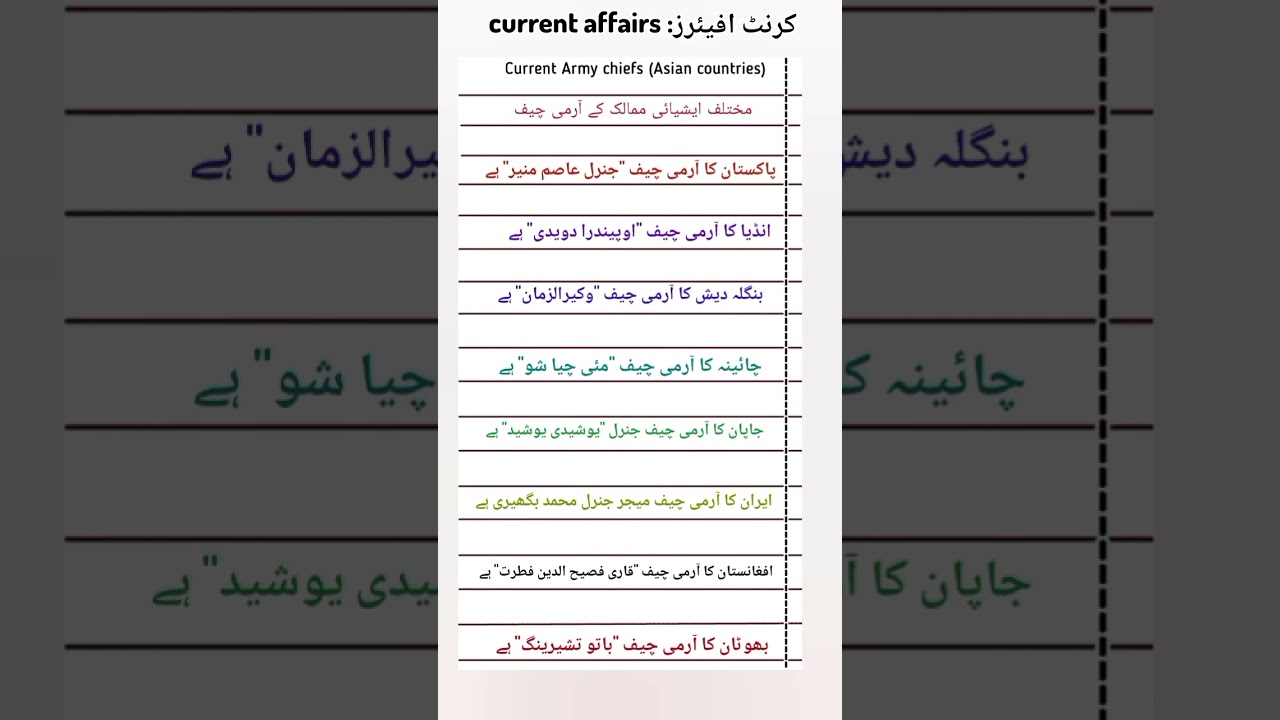 کرنٹ افیئرز: current affairs
Current Army chiefs (Asian countries)
مختلف ایشیائی ممالک کے آرمی چیف
پاکستان کا آرمی چیف "جنرل عاصم منیر" ہے
انڈیا کا آرمی چیف "اوپیندرا دویدی" ہے
بنگلہ دیش کا آرمی چیف "وکیرالزمان" ہے
چائینہ کا آرمی چیف "مئی چیا شو" ہے
جاپان کا آرمی چیف جنرل "یوشیدی یوشید" ہے
ایران کا آرمی چیف میجر جنرل محمد بگھیری ہے
افغانستان کا آرمی چیف "قاری فصیح الدین فطرت" ہے
بھوٹان کا آرمی چیف "باتو تشیرینگ" ہے